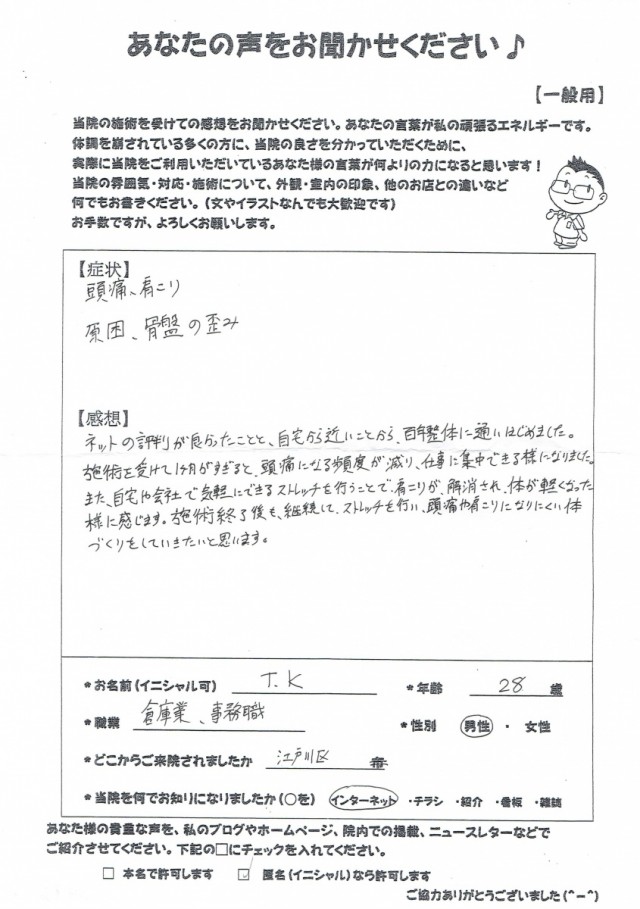 あなたの声をお聞かせください♪
【一般用】
当院の施術を受けての感想をお聞かせください。あなたの言葉が私の頑張るエネルギーです。
体調を崩されている多くの方に、当院の良さを分かっていただくために、
実際に当院をご利用いただいているあなた様の言葉が何よりの力になると思います！
当院の雰囲気・対応・施術について、外観・室内の印象、他のお店との違いなど
何でもお書きください。（文やイラストなんでも大歓迎です）
お手数ですが、よろしくお願いします。
【症状】
頭痛、肩こり
原因、骨盤の歪み
【感想】
ネットの評判が良かったことと、自宅から近いことから、百年整体に通いはじめました。
施術を受けて1ヶ月がすぎると、頭痛になる頻度が減り、仕事に集中できる様になりました。
また、自宅や会社で気軽にできるストレッチを行うことで、肩こりが、解消され、体が軽くなった
様に感じます。施術終了後も、継続して、ストレッチを行い、頭痛や肩こりになりにくい体
づくりをしていきたいと思います。
*お名前（イニシャル可） T.K *年齢 28 歳
*職業 倉庫業、事務職 *性別 男性 ・ 女性
*どこからご来院されましたか 江戸川区
*当院を何でお知りになりましたか（○を） インターネット ・チラシ ・紹介 ・看板 ・雑誌
あなた様の貴重な声を、私のブログやホームページ、院内での掲載、ニュースレターなどで
ご紹介させてください。下記の□にチェックを入れてください。
□ 本名で許可します ☑ 匿名（イニシャル）なら許可します
ご協力ありがとうございました(^-^)